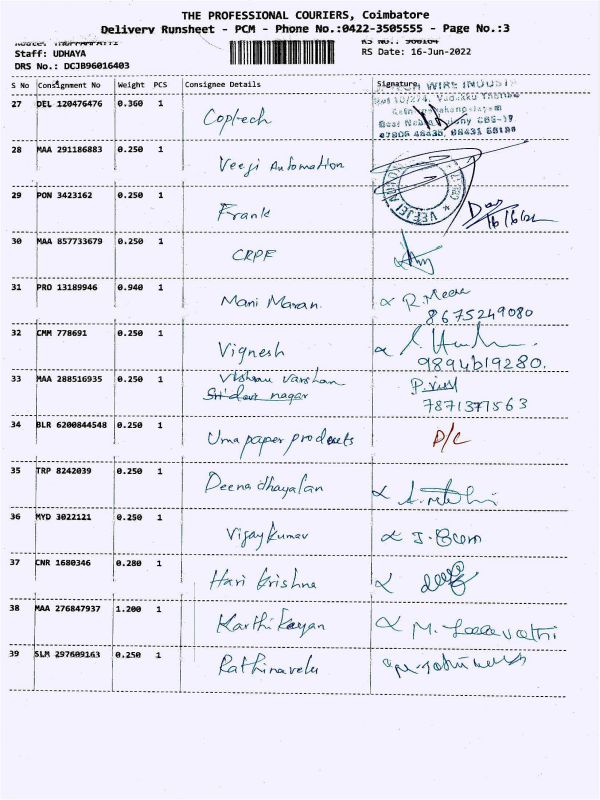 THE PROFESSIONAL COURIERS, Coimbatore
Delivery Runsheet - PCM - Phone No.:0422-3505555 - Page No.:3
RS No.: 960164
Staff: UDHAYA
RS Date: 16-Jun-2022
DRS No.: DCJB96016403
S No Consignment No Weight PCS Consignee Details Signature
27 DEL 120476476 0.360 1 Coptech
WIRE INDUST
28 MAA 291186883 0.250 1 Veeji Automation
29 PON 3423162 0.250 1 Frank
16/6/22
30 MAA 857733679 0.250 1 CRPF
31 PRO 13189946 0.940 1 Mani Maran
8675249080
32 CMM 778691 0.250 1 Vignesh
9894619280.
33 MAA 288516935 0.250 1 Vishnu Varshan
nagar
7871377563
34 BLR 6200844548 0.250 1 Uma paper products D/C
35 TRP 8242039 0.250 1 Deenadhayalan
36 MYD 3022121 0.250 1 Vijay Kumar
37 CNR 1680346 0.280 1 Hari Krishna
38 MAA 276847937 1.200 1 Karthikeyan M. Leelavathi
39 SLM 297609163 0.250 1 Rathinavelu